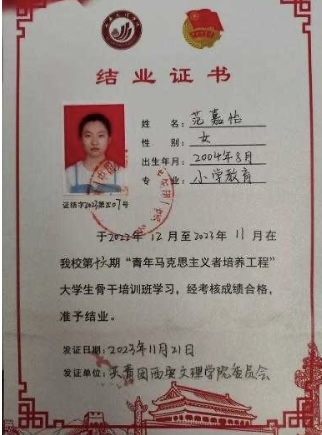 结业证书
姓名：范嘉怡
性别：女
出生年月：2004年8月
专业：小学教育
证结字2023第207号
于2022年12月至2023年11月在
我校第十六期“青年马克思主义者培养工程”
大学生骨干培训班学习，经考核成绩合格，
准予结业。
发证日期：2023年11月21日
发证单位：共青团西安文理学院委员会